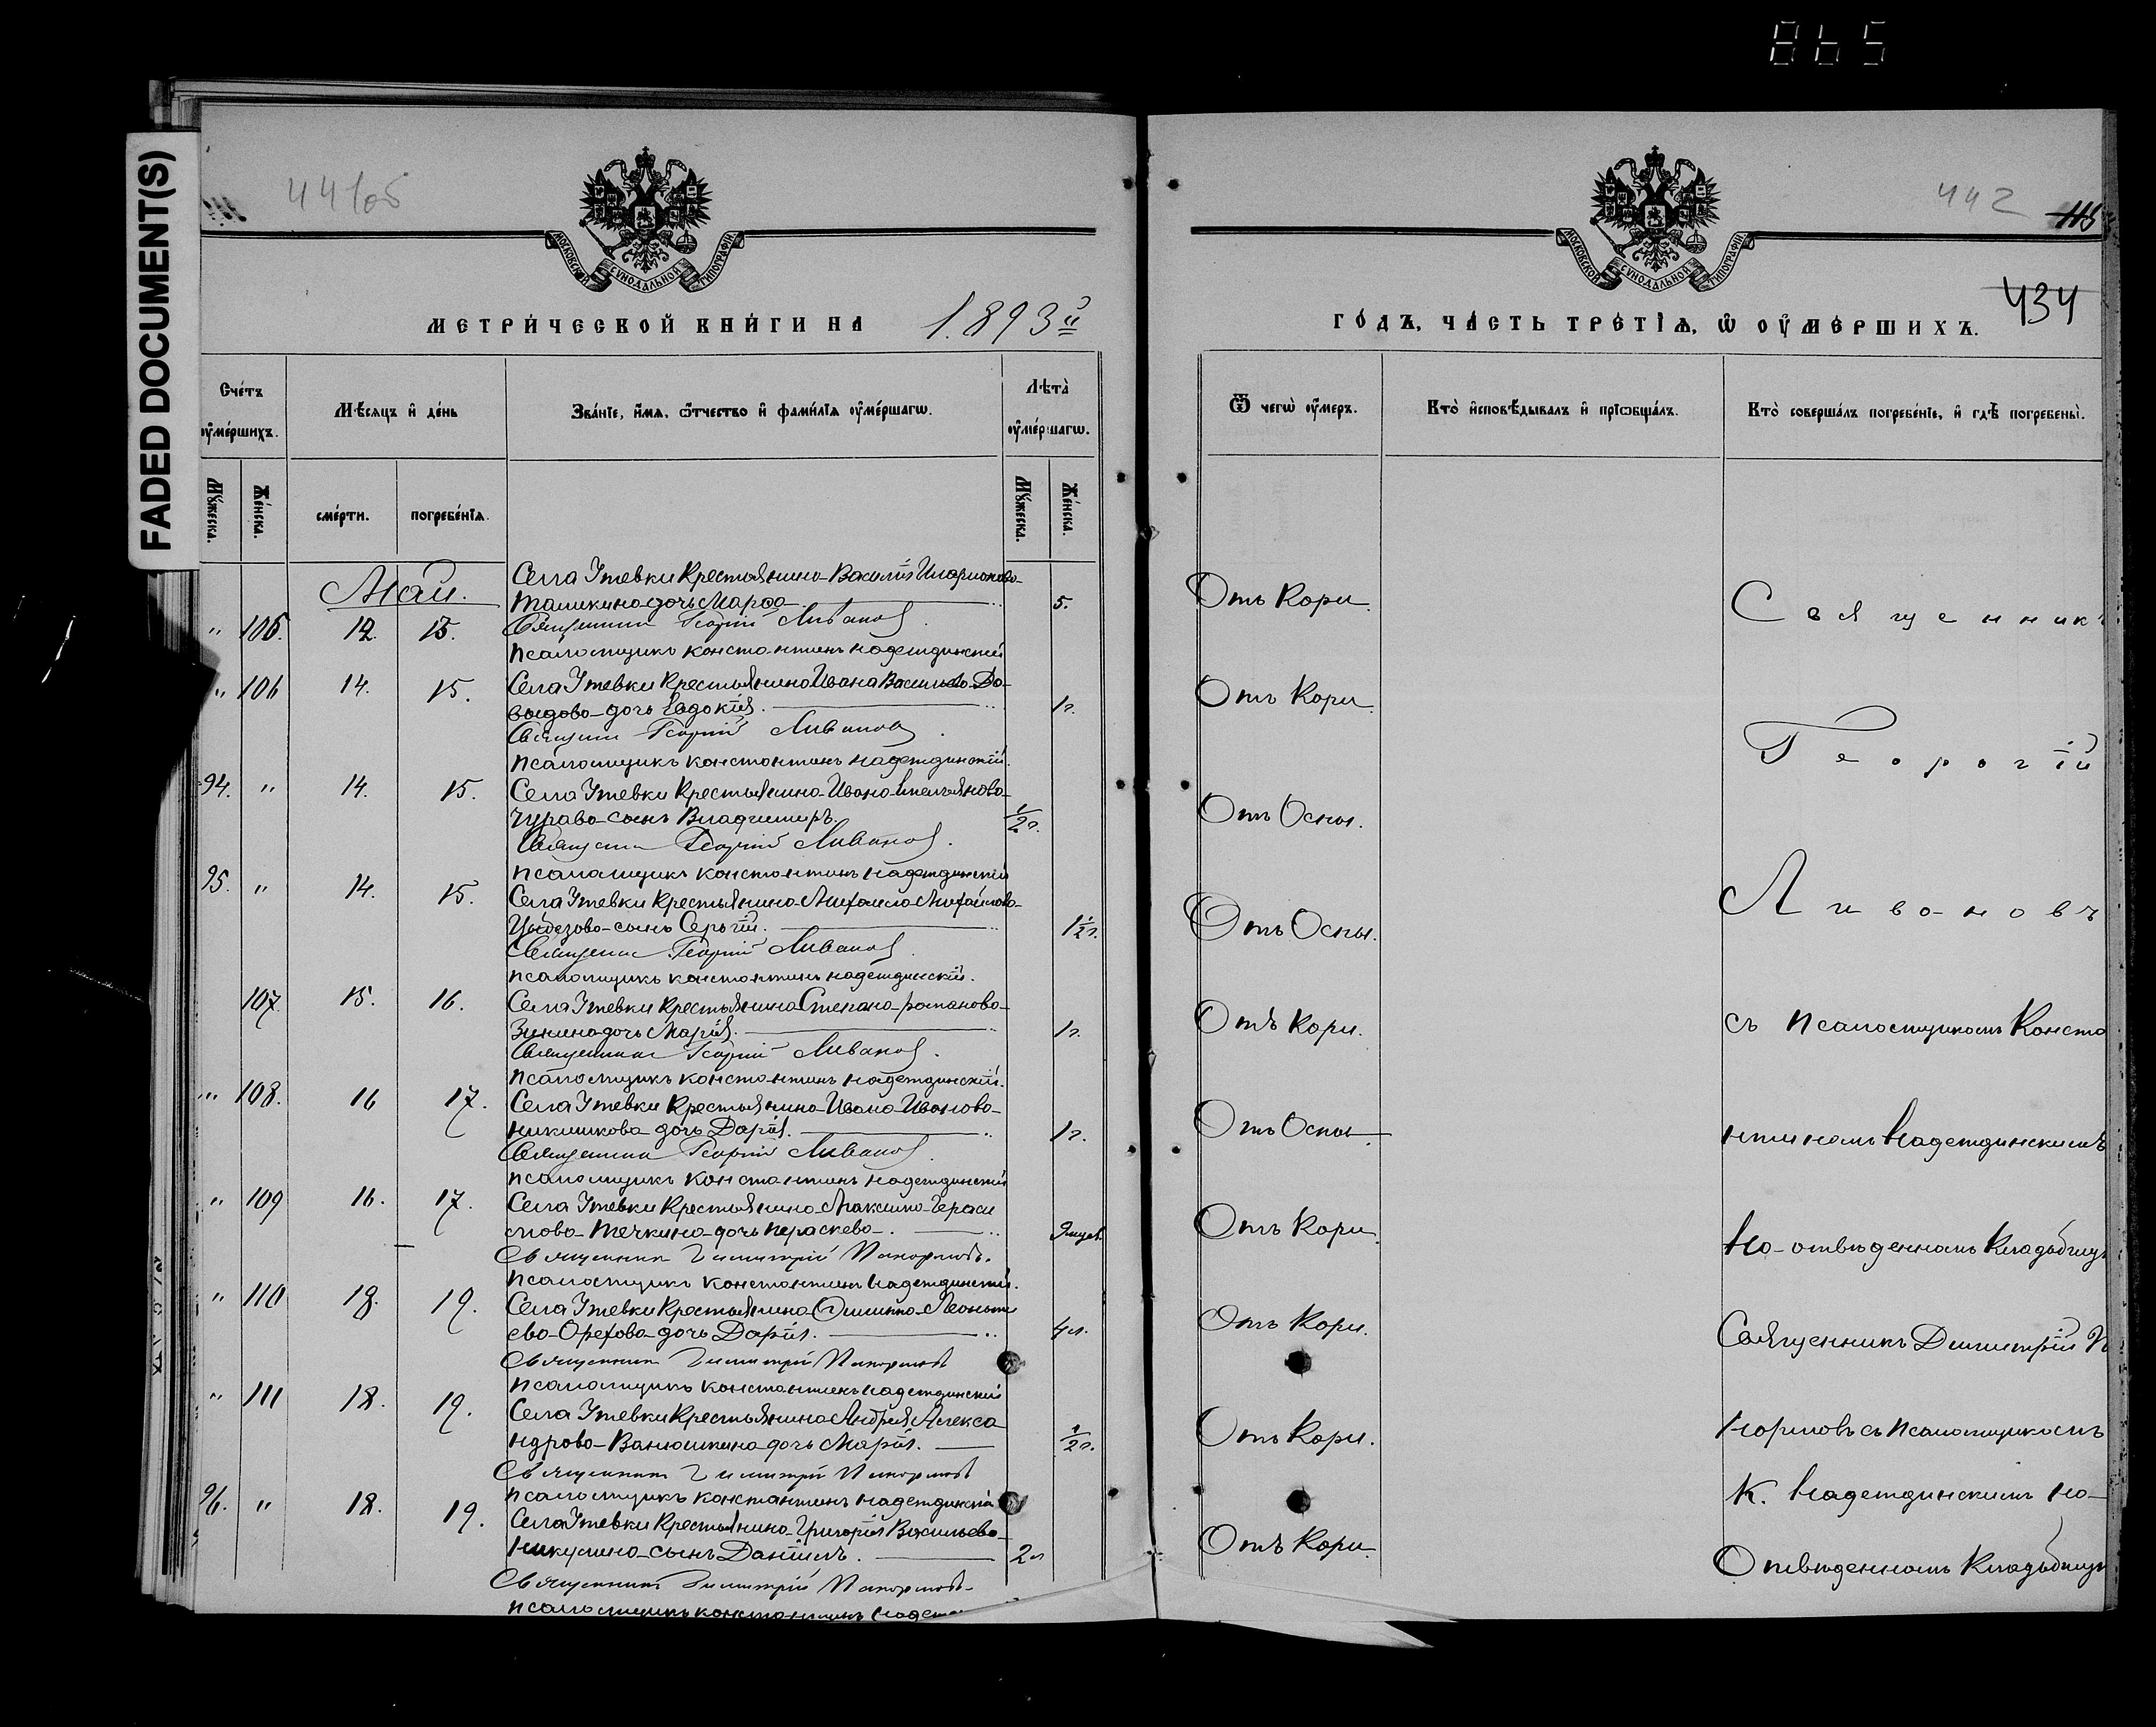 865
FADED DOCUMENT(S)
441об
МОСКОВСКОЙ СѴНОДАЛЬНОЙ ТИПОГРАФІИ
МЕТРИ́ЧЕСКОЙ КНИ́ГИ НА 1893й
Сче́тъ ᲂу҆ме́ршихъ.
Мѣ́сяцъ и҆ де́нь
Зва́нїе, и҆́мя, ѻ҆́тчество и҆ фами́лїя ᲂу҆ме́ршагѡ.
Лѣ́та ᲂу҆ме́ршагѡ.
Мꙋ́жеска.
Же́нска.
сме́рти.
погребе́нїя.
Мꙋ́жеска.
Же́нска.
Май.
Села Утевки Крестьянина Василія Иларионова
Таликина дочь Марфа 5.
" 105. 12. 13.
Священникъ Георгій Ливановъ.
Псаломщикъ Константинъ Надеждинскій
" 106 14. 15. Села Утевки Крестьянина Ивана Васильева Да-
выдова дочь Евдокія. 1 г.
Священникъ Георгій Ливановъ.
Псаломщикъ Константинъ Надеждинскій.
94. " 14. 15. Села Утевки Крестьянина Ивана Емельянова
Чурава сынъ Владимиръ. 1/2 г.
Священникъ Георгій Ливановъ.
Псаломщикъ Константинъ Надеждинскій
95. " 14. 15. Села Утевки Крестьянина Михаила Михайлова
сынъ Сергій. 1 1/2 г.
Священникъ Георгій Ливановъ.
Псаломщикъ Константинъ Надеждинскій.
107. 15. 16. Села Утевки Крестьянина Степана Романова
Зинина дочь Марія. 1 г.
Священникъ Георгій Ливановъ.
Псаломщикъ Константинъ Надеждинскій.
" 108. 16 17. Села Утевки Крестьянина Ивана Иванова
Никишкова дочь Дарія. 1 г.
Священникъ Георгій Ливановъ.
Псаломщикъ Константинъ Надеждинскій
" 109 16. 17. Села Утевки Крестьянина Максима Гераси
мова Течкина дочь Пераскева. 9 мцев.
Священникъ Димитрій Покормовъ.
Псаломщикъ Константинъ Надеждинскій.
" 110 18. 19. Села Утевки Крестьянина Филиппа Леонтье
ева Орехова дочь Дарія. 4 л.
Священникъ Димитрій Покормовъ
Псаломщикъ Константинъ Надеждинскій
" 111 18. 19. Села Утевки Крестьянина Андрея Алекса
ндрова Ванюшкина дочь Марія. 1/2 г.
Священникъ Димитрій Покормовъ
Псаломщикъ Константинъ Надеждинскій
96. " 18. 19. Села Утевки Крестьянина Григорія Васильева
Никулина сынъ Даніилъ. 2 г
Священникъ Димитрій Покормовъ
Псаломщикъ Константинъ
442
434
МОСКОВСКОЙ СѴНОДАЛЬНОЙ ТИПОГРАФІИ
ГО́ДЪ, ЧА́СТЬ ТРЕ́ТЇѦ, Ѡ҆ ОУ҆МЕ́РШИХЪ.
Ѿ чегѡ̀ ᲂу҆́меръ.
Кто̀ и҆сповѣ́дывалъ и҆ прїѻбща́лъ.
Кто̀ соверша́лъ погребе́нїе, и҆ гдѣ̀ погребены̀.
Отъ Кори.
Священникъ
Отъ Кори.
Георгій
Отъ Оспы.
Ливановъ
Отъ Оспы.
Отъ Кори.
съ Псаломщикомъ Конста
Отъ Оспы
нтиномъ Надеждинскимъ
Отъ Кори.
На отведенномъ Кладбищ
Отъ Кори.
Священникъ Димитрій П
Отъ Кори.
кормовъ съ Псаломщикомъ
К. Надеждинскимъ На
Отъ Кори.
Отведенномъ Кладбищ